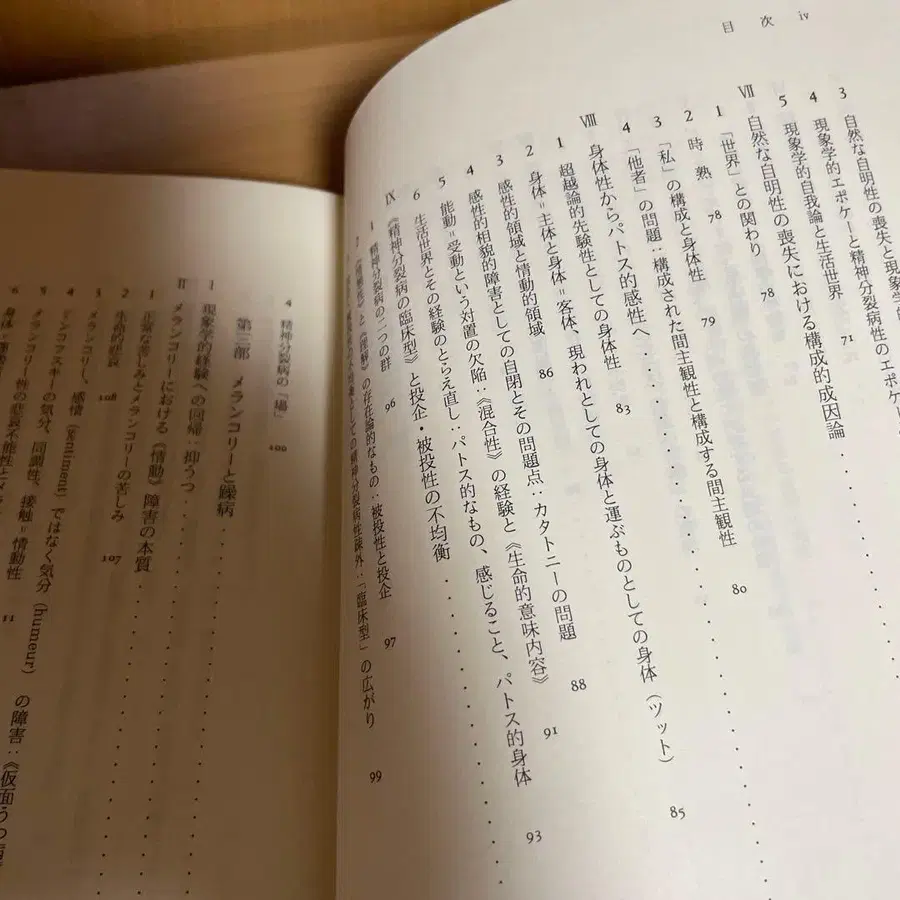 目次 iv
3 自然な自明性の喪失と現象学的
現象学的エポケーと精神分裂病性のエポケー
4 現象学的自我論と生活世界 71
5 自然な自明性の喪失における構成的成因論
VII 自然な自明性の喪失における構成的成因論
1 「世界」との関わり 78
2 時熟 78
3 「私」の構成と身体性 79
4 「他者」の問題：構成された間主観性と構成する間主観性 80
VIII 身体性からパトス的感性へ 83
1 超越論的先験性としての身体性
2 身体＝主体と身体＝客体、現われとしての身体と運ぶものとしての身体（ツット） 85
3 感性的領域と情動的領域 86
4 感性的相貌的障害としての自閉とその問題点：カタトニーの問題 88
5 能動＝受動という対置の欠陥：《混合性》の経験と《生命的意味内容》 91
6 生活世界とその経験のとらえ直し：パトス的なもの、感じること、パトス的身体 93
IX 《精神分裂病の臨床型》と投企・被投性の不均衡
1 精神分裂病の二つの群 96
の存在論的なもの：被投性と投企 97
としての精神分裂病性疎外：「臨床型」の広がり 99
4 精神分裂病の「場」 100
第三部 メランコリーと躁病
I 現象学的経験への回帰：抑うつ
II メランコリーにおける《情動》障害の本質
1 正常な苦しみとメランコリーの苦しみ 107
2 生命的悲哀 108
3 メランコリー、感情（sentiment）ではなく気分（humeur）の障害：《仮面うつ
4 気分、同調性、接触＝情動性 11
5 メランコリー性の悲哀不能性と
6